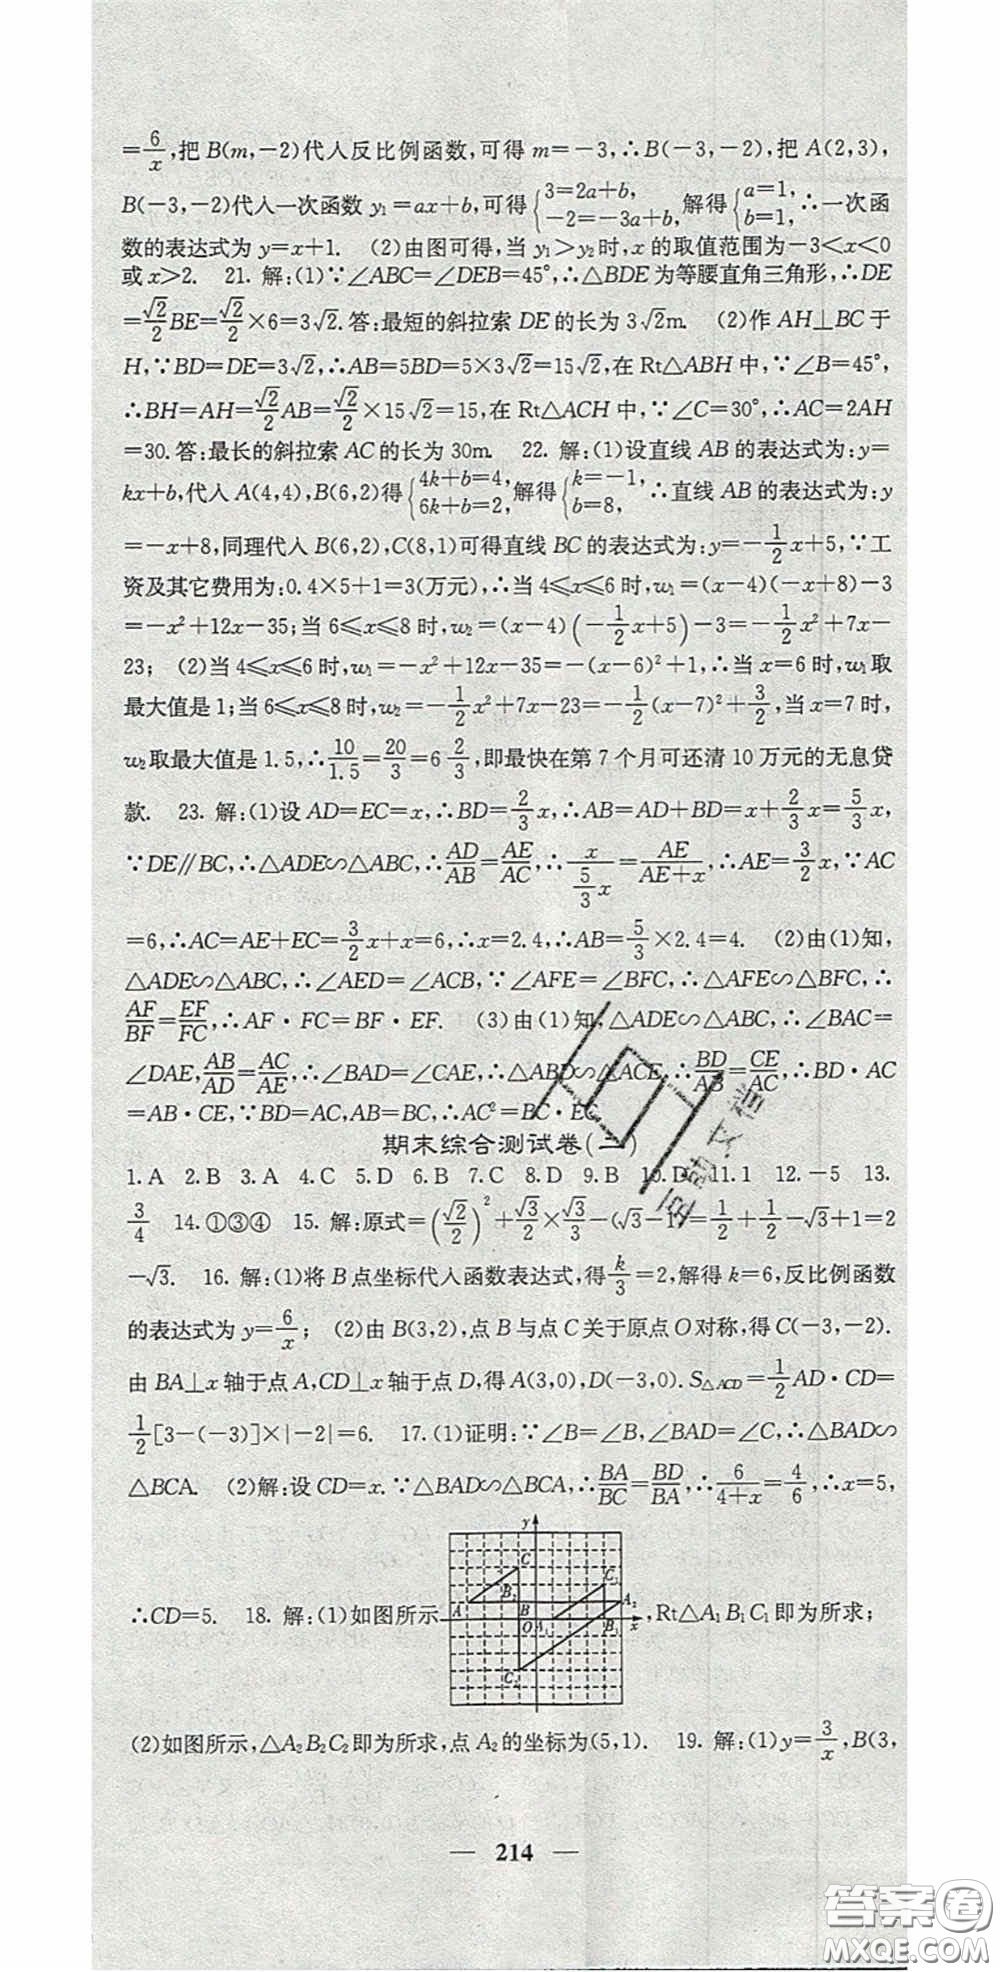 =6/x,把B(m,-2)代入反比例函数,可得m=-3,∴B(-3,-2),把A(2,3),
B(-3,-2)代入一次函数y₁=ax+b,可得{3=2a+b, -2=-3a+b, 解得{a=1, b=1, ∴一次函
数的表达式为y=x+1. (2)由图可得,当y₁>y₂时,x的取值范围为-3<x<0
或x>2. 21. 解:(1)∵∠ABC=∠DEB=45°,∴△BDE为等腰直角三角形,∴DE
=√2/2 BE=√2/2×6=3√2.答:最短的斜拉索DE的长为3√2m. (2)作AH⊥BC于
H,∵BD=DE=3√2,∴AB=5BD=5×3√2=15√2,在Rt△ABH中,∵∠B=45°,
∴BH=AH=√2/2 AB=√2/2×15√2=15,在Rt△ACH中,∵∠C=30°,∴AC=2AH
=30.答:最长的斜拉索AC的长为30m. 22. 解:(1)设直线AB的表达式为:y=
kx+b,代入A(4,4),B(6,2)得{4k+b=4, 6k+b=2, 解得{k=-1, b=8, ∴直线AB的表达式为:y
=-x+8,同理代入B(6,2),C(8,1)可得直线BC的表达式为:y=-1/2 x+5,∵工
资及其它费用为:0.4×5+1=3(万元),∴当4≤x≤6时,w₁=(x-4)(-x+8)-3
=-x²+12x-35;当6≤x≤8时,w₂=(x-4)(-1/2 x+5)-3=-1/2 x²+7x-
23; (2)当4≤x≤6时,w₁=-x²+12x-35=-(x-6)²+1,∴当x=6时,w₁取
最大值是1;当6≤x≤8时,w₂=-1/2 x²+7x-23=-1/2(x-7)²+3/2,当x=7时,
w₂取最大值是1.5,∴10/1.5=20/3=6 2/3,即最快在第7个月可还清10万元的无息贷
款. 23. 解:(1)设AD=EC=x,∴BD=2/3 x,∴AB=AD+BD=x+2/3 x=5/3 x,
∵DE∥BC,∴△ADE∽△ABC,∴AD/AB=AE/AC,∴x/(5/3 x)=AE/(AE+x),∴AE=3/2 x,∵AC
=6,∴AC=AE+EC=3/2 x+x=6,∴x=2.4,∴AB=5/3×2.4=4. (2)由(1)知,
△ADE∽△ABC,∴∠AED=∠ACB,∵∠AFE=∠BFC,∴△AFE∽△BFC,∴
AF/BF=EF/FC,∴AF·FC=BF·EF. (3)由(1)知,△ADE∽△ABC,∴∠BAC=
∠DAE,AB/AD=AC/AE,∴∠BAD=∠CAE,∴△ABD∽△ACE,∴BD/AB=CE/AC,∴BD·AC
=AB·CE,∵BD=AC,AB=BC,∴AC²=BC·EC.
期末综合测试卷(二)
1.A 2.B 3.A 4.C 5.D 6.B 7.C 8.D 9.B 10.D 11.1 12.-5 13.
3/4 14.①③④ 15. 解:原式=(√2/2)²+√3/2×√3/3-(√3-1)=1/2+1/2-√3+1=2
-√3. 16. 解:(1)将B点坐标代入函数表达式,得k/3=2,解得k=6,反比例函数
的表达式为y=6/x; (2)由B(3,2),点B与点C关于原点O对称,得C(-3,-2).
由BA⊥x轴于点A,CD⊥x轴于点D,得A(3,0),D(-3,0).S△ACD=1/2 AD·CD=
1/2[3-(-3)]×|-2|=6. 17.(1)证明:∵∠B=∠B,∠BAD=∠C,∴△BAD∽
△BCA. (2)解:设CD=x.∵△BAD∽△BCA,∴BA/BC=BD/BA,∴6/(4+x)=4/6,∴x=5,
y
C
C₁
B₂
A
B
A₂
∴CD=5. 18. 解:(1)如图所示 ,Rt△A₁B₁C₁即为所求;
O
A₁
B₁
x
C₂
(2)如图所示,△A₂B₂C₂即为所求,点A₂的坐标为(5,1). 19. 解:(1)y=3/x,B(3,
— 214 —
答案圈
MXQE.COM